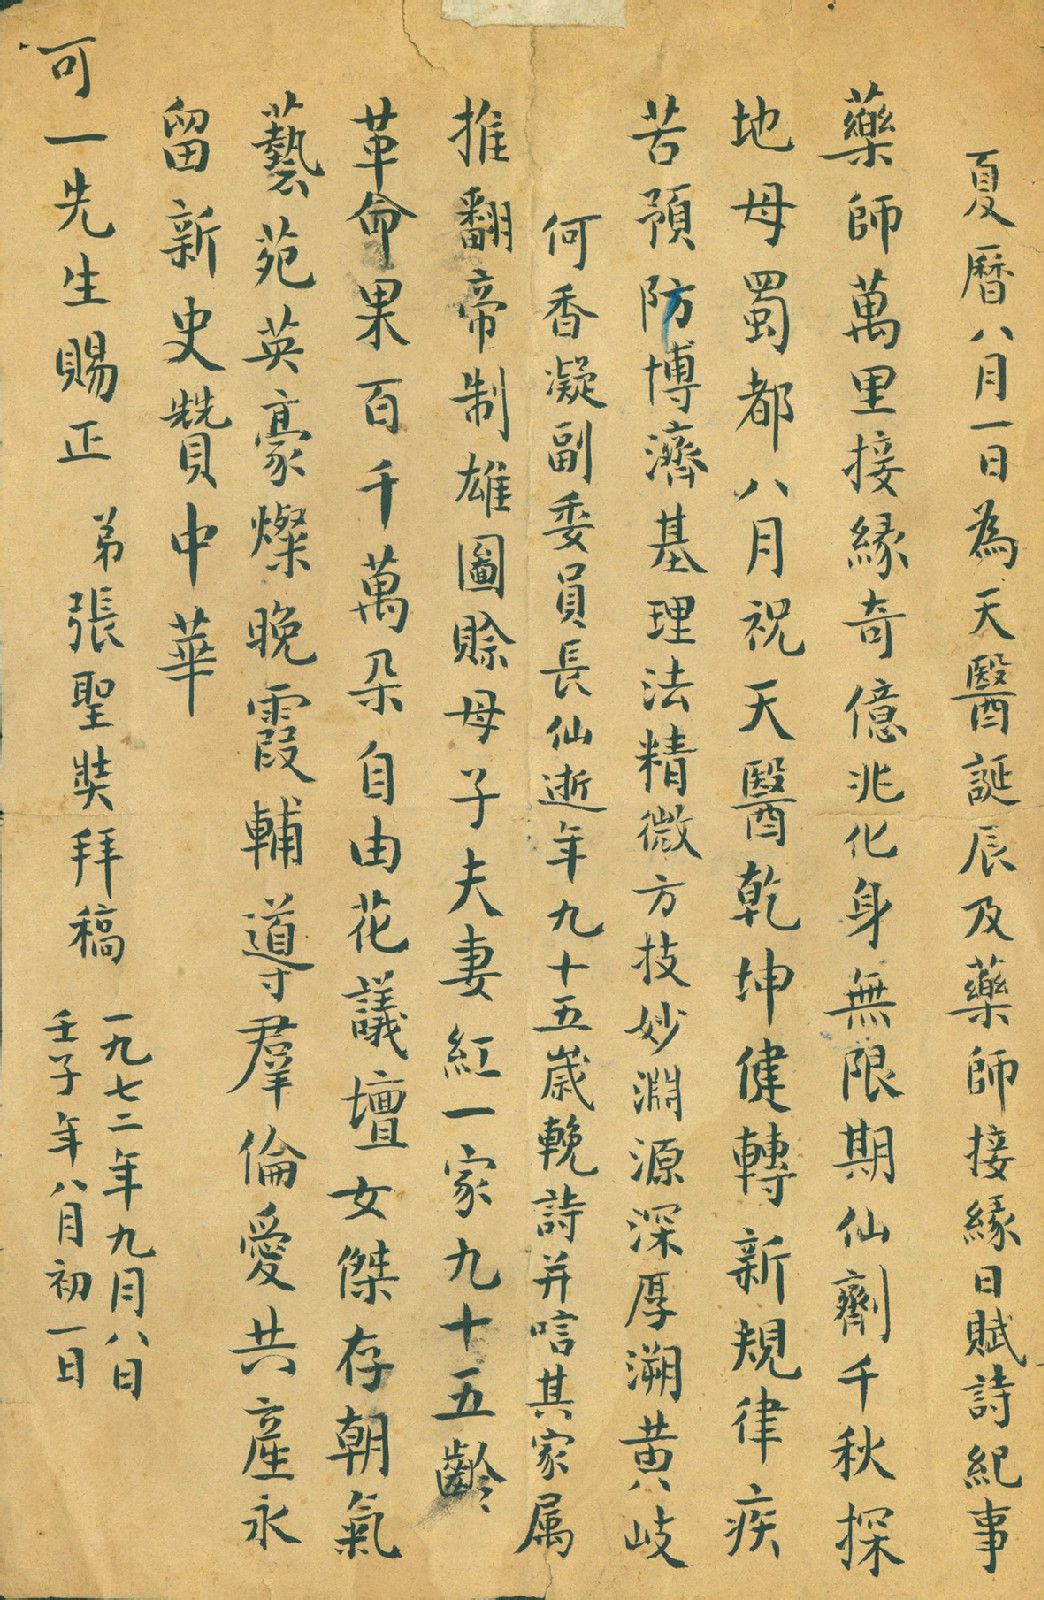 夏曆八月一日為天醫誕辰及藥師接緣日賦詩紀事
藥師萬里接緣奇億兆化身無限期仙劑千秋探
地母蜀都八月祝天醫乾坤健轉新規律疾
苦預防博濟基理法精微方技妙淵源深厚溯黄岐
何香凝副委員長仙逝年九十五歲輓詩并唁其家属
推翻帝制雄圖賒母子夫妻紅一家九十五齡
革命果百千萬朵自由花議壇女傑存朝氣
藝苑英豪燦晚霞輔導羣倫愛共產永
留新史贊中華
可一先生賜正 弟張聖奘拜稿
一九七二年九月八日
壬子年八月初一日